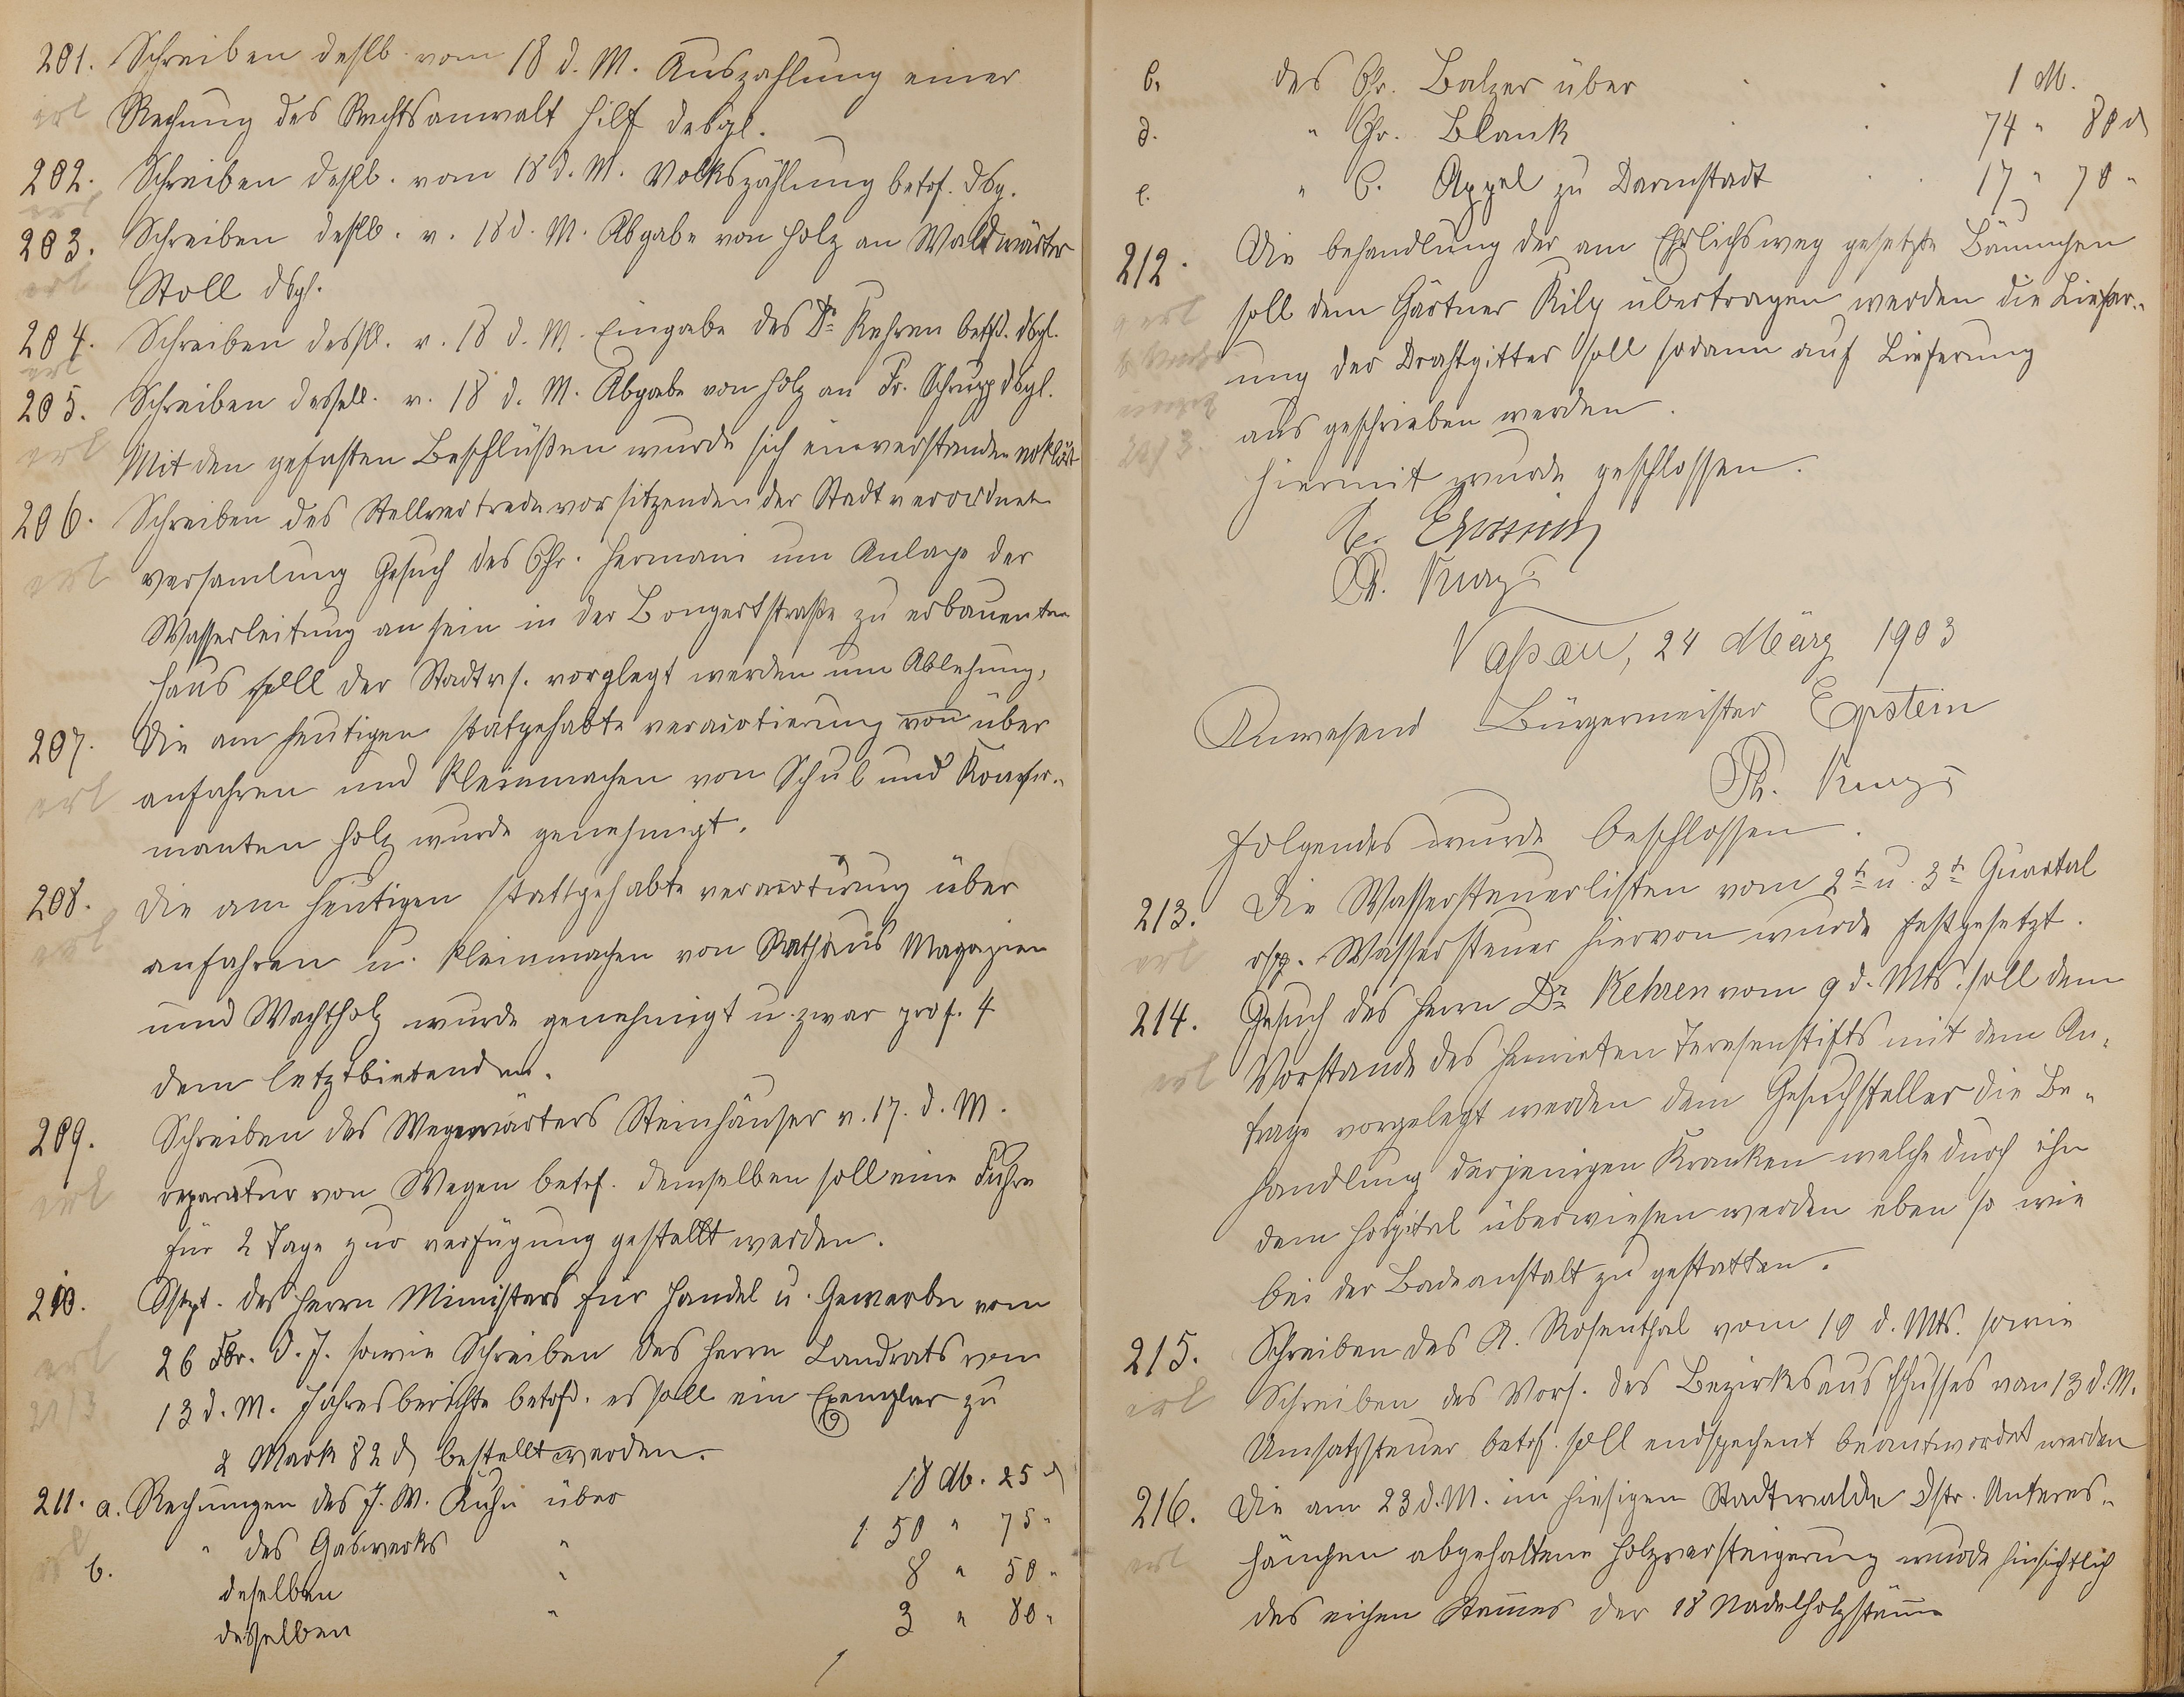 201. Schreiben desslb. vom 18 d. M. Auszahlung einer
erl Rechnung des Rechtsanwalt Hilf desgl.
202. Schreiben desslb. vom 18 d. M. Volkszählung betrf. dsg.
erl
203. Schreiben desslb. v. 18 d. M. Abgabe von Holz an Waldwärter
erl Stoll dsgl.
204. Schreiben dessll. v. 18 d. M. Eingabe des Dr Kehren betfd. dsgl.
erl
205. Schreiben dessell. v. 18 d. M. Abgabe von Holz an Fr. Schrupp dsgl.
erl Mit den gefasten Beschlüßen wurde sich einverstanden erklärt
206. Schreiben des Stellvertredn vorsitzenden der Stadtverordnet
erl versamlung Gesuch des Chr. Hermani um Anlage der
Wasserleitung an sein in der Bongertstraße zu erbauenten
Haus soll der Stadtvs. vorglegt werden um Ablehung,
207. Die am heutigen statgehabte veraiotierung von über
erl anfahren und kleinmachen von Schul und Konfir-
manten Holz wurde genehmigt.
208. Die am heutigen stattgehabte über
erl anfahren u. kleinmachen von Rathaus Magazien
und Wachtholz wurde genehmigt u. zwar prof. 4
dem letztbietenden.
209. Schreiben des Wegewärters Steinhäuser v. 17. d. M.
erl reparatur von Wegen betrf. demselben soll eine Fuhre
für 2 Tage zur verfügung gestellt werden.
210. des Herrn Ministers für Handel u. Gewerbe vom
erl 26 Fbr. d. J. sowie Schreiben des Herrn Landrats vom
13 d. M. Jahresberichte betrfd. es soll ein Exemplar zu
2 Mark 82 d bestellt werden.
211. a. Rechnungen des J. W. Kuhn über 18 M. 25 d
erl b. " des Gaswerks " 150 " 75 "
deselben " 8 " 50 "
desselben " 3 " 80 "
c. des Chr. Balzer über 1 M.
d. " Chr. Blank 74 " 80 d
e. " C. Appel zu Darmstadt 17 " 70 "
212. Die behandlung der am Ehrlichsweg gesetzte Bäumchen
erl soll dem Gärtner Kilp übertragen werden die Liefer-
ung der Drahtgitter soll sodann auf Lieferung
aus geschrieben werden.
hiermit wurde geschlossen.
Epstein
Ph. Kurz
Naßau, 24 März 1903
Anwesend Bürgermeister Epstein
Ph. Kurz
folgendes wurde beschlossen.
213. Die Wassersteuerlisten vom 2t u. 3t Quartal
erl rsp. Wassersteuer hiervon wurde festgesetzt.
214. Gesuch des Herrn Dr Kehren vom 9 d. Mts. soll dem
erl Vorstande des Henrieten Teresenstifts mit dem An-
trage vorgelegt werden dem Gesuchsteller die Be-
handlung derjenigen Kranken welche durch ihn
dem Hospital überwiesen werden eben so wie
bei der Badeanstalt zu gestatten.
215. Schreiben des A. Rosenthal vom 10 d. Mts. sowie
erl Schreiben des Vors. des Bezirksausschusses von 13 d. M.
Umsatzsteuer betrf. soll endspechent beantwordet werden
216. Die am 23 d. M. im hiesigen Stadtwalde Dstr. Unteres-
erl hänchen abgehaltene Holzversteigerung wurde hinsichtlich
des eichen Stammes der 18 Nadelholzstäme